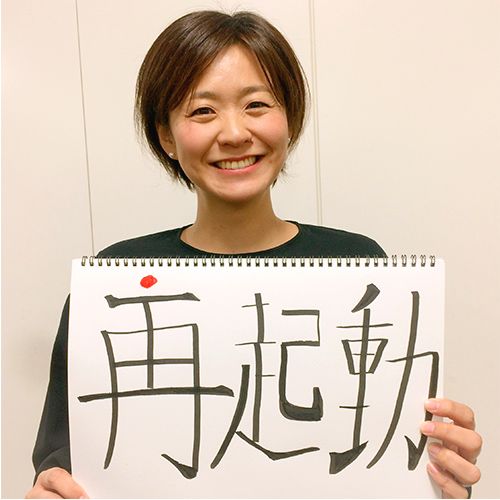 再起動